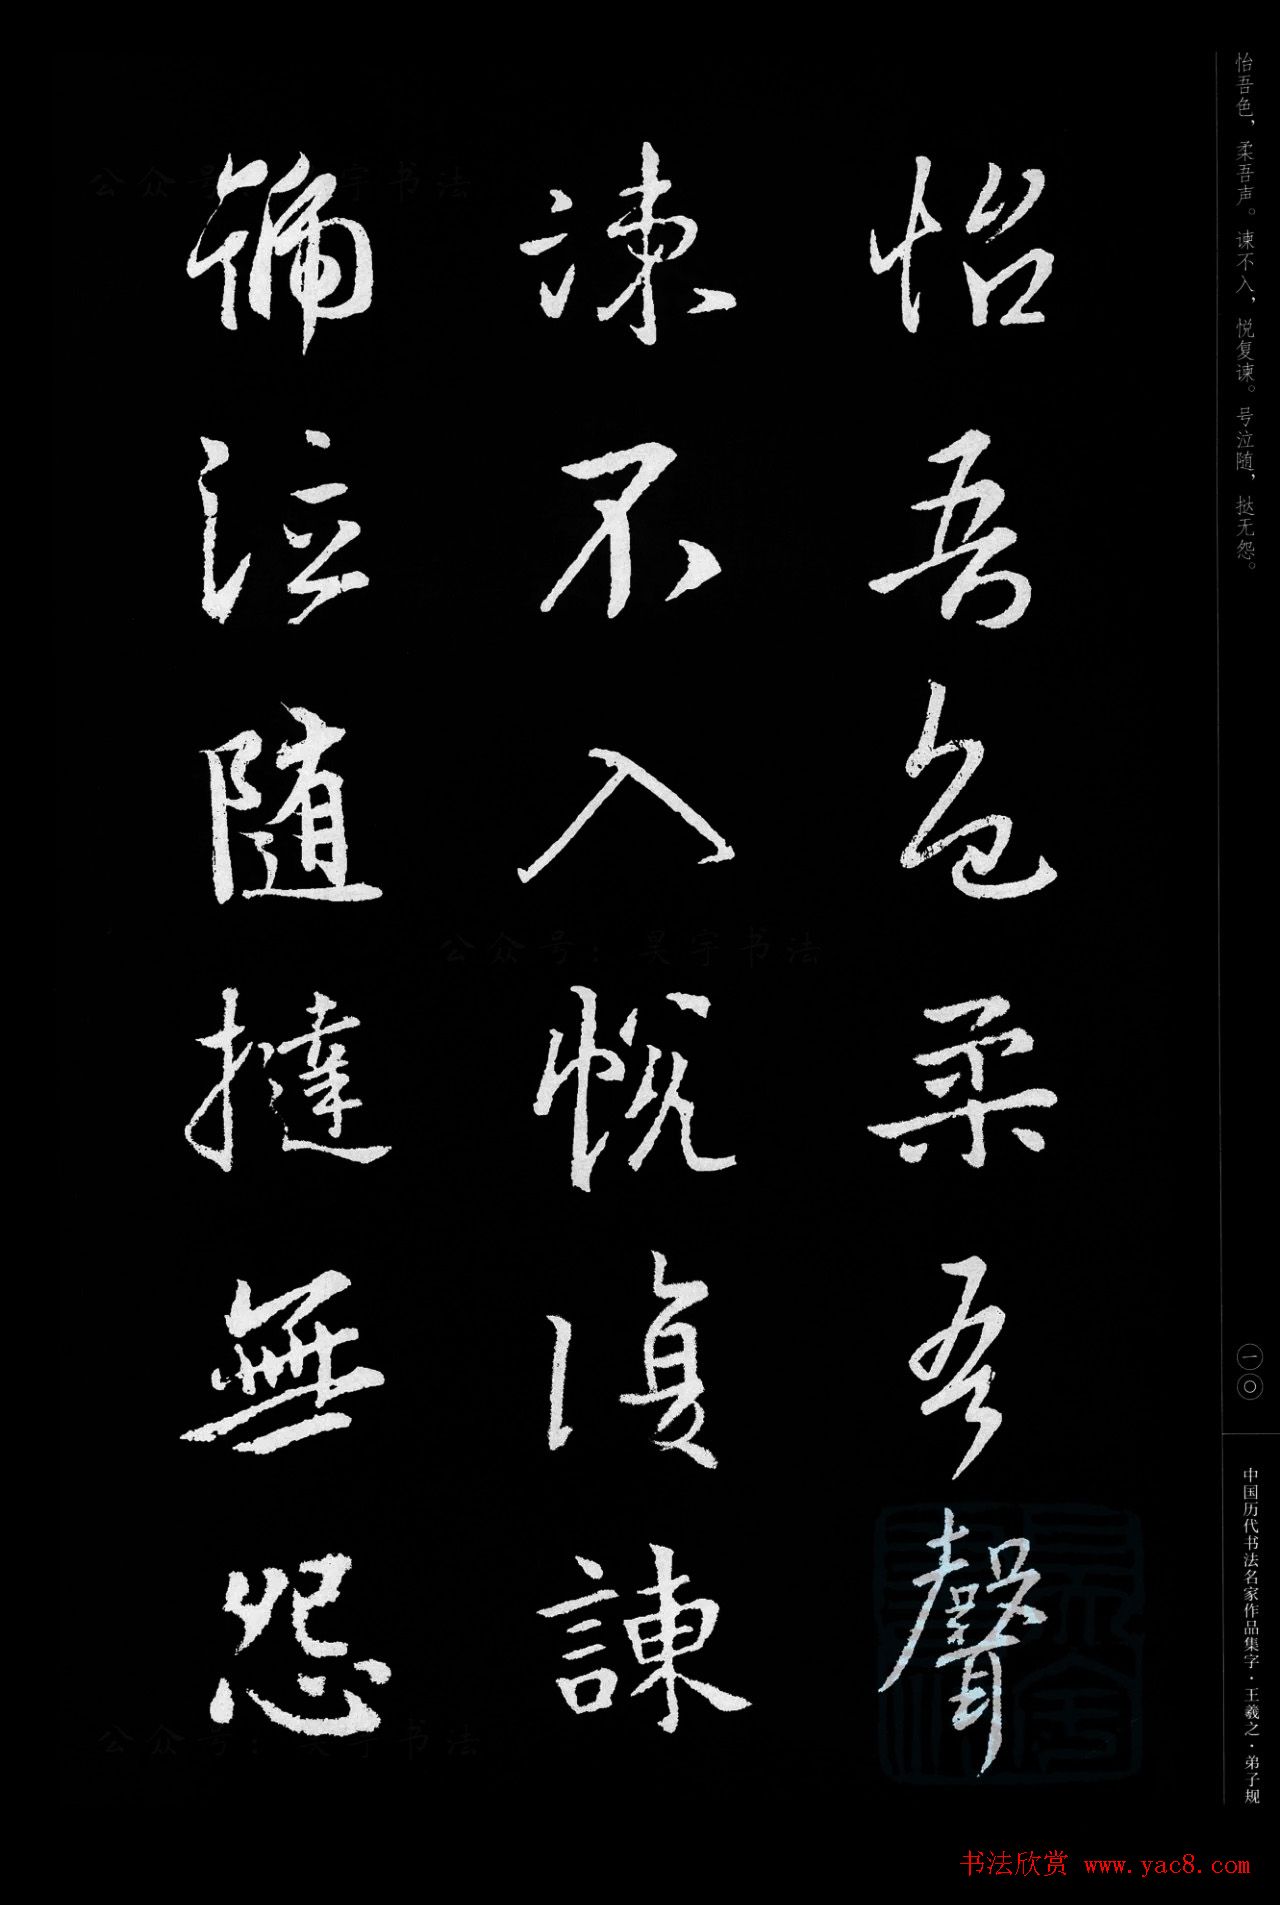 怡吾色，柔吾声。谏不入，悦复谏。号泣随，挞无怨。
怡吾色柔吾聲
諫不入悅復諫
號泣隨撻無怨
一〇
中国历代书法名家作品集字·王羲之·弟子规
公众号：昊宇书法
书法欣赏 www.yac8.com